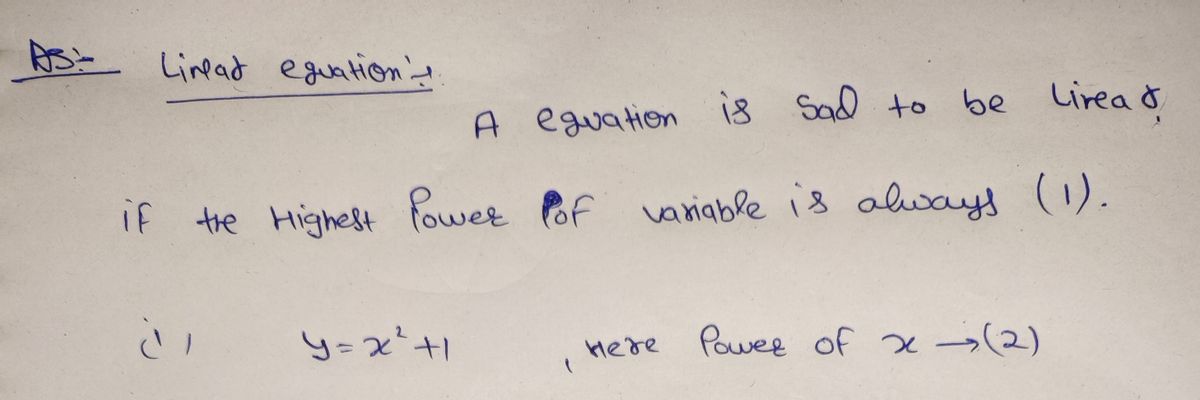 Ans:- Linear equation:-
A equation is Sad to be Linear,
if the Highest Power of variable is always (1).
(i) y=x²+1 , Here Power of x →(2)